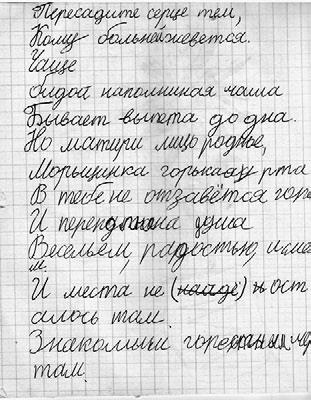 Пересадите серце тем,
Кому больней живется.
Чаще
бидой напомниная чаша
Бывает выпета до дна.
Но матири лицо родные,
Морщинка горькая у рта
В тебе не отзавётся горе
И переполнина душа
Весельем, радостью, и сме
м.
И места не (найде) н ост
алось там.
Знакомым горе чер
там.